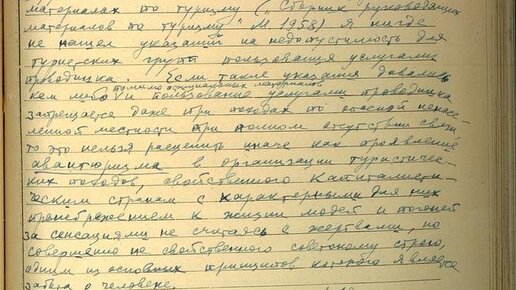 материалах по туризму ("Сборник руководящих
материалов по туризму" М 1958) я нигде
не нашел указаний на недопустимость для
туристских групп пользования услугами
проводника. Если такие указания давались
кем либо помимо официальных материалов
и пользование услугами проводника
запрещается даже при походах по опасной ненасе-
ленной местности при полном отсутствии связи
то это нельзя расценить иначе как проявление
авантюризма в организации туристичес-
ких походов, свойственного капиталисти-
ческим странам с характерными для них
пренебрежением к жизни людей и погоней
за сенсациями не считаясь с жертвами, но
совершенно не свойственного советскому строю,
одним из основных принципов которого является
забота о человеке.